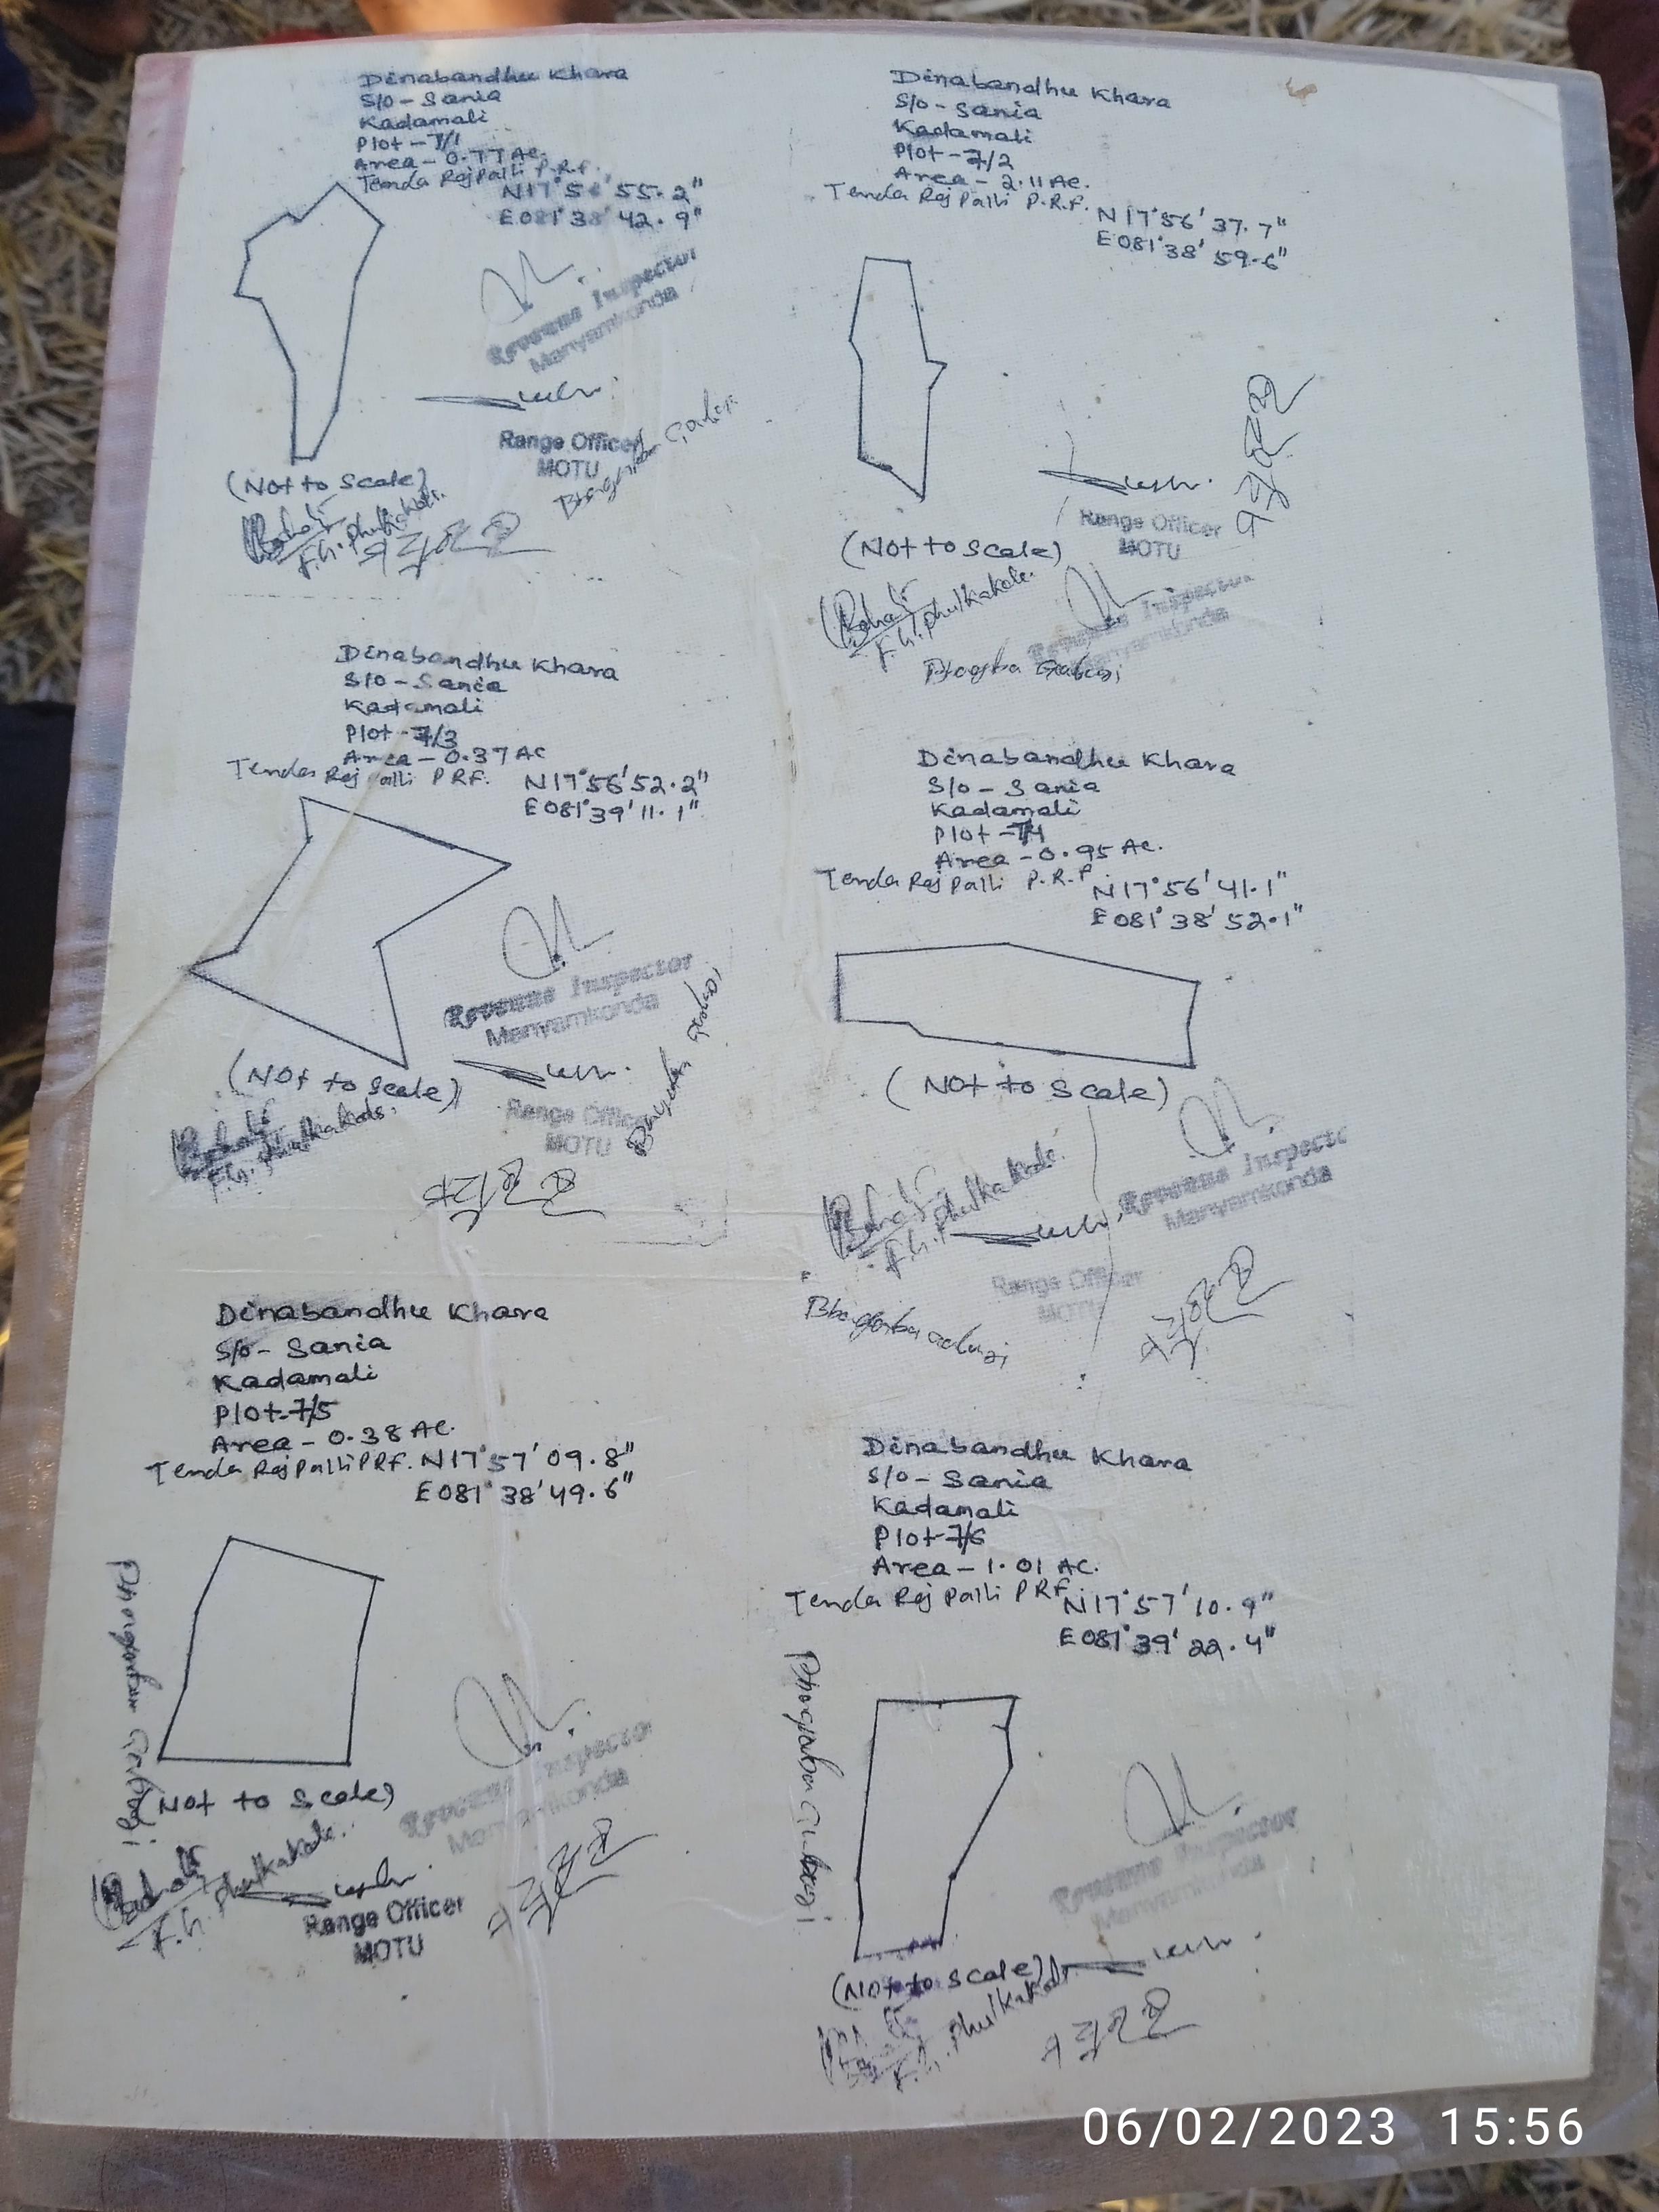 Dinabandhu Khara
S/o - Sania
Kadamali
Plot - 7/1
Area - 0.77 Ac.
Tenda Raj Palli P.R.F.
N17°56'55.2"
E081°38'42.9"
Revenue Inspector
Manyamkonda
Range Officer
MOTU
(Not to Scale)
F.G. Phulkakole.
Dinabandhu Khara
S/o - Sania
Kadamali
Plot - 7/2
Area - 2.11 Ac.
Tenda Raj Palli P.R.F.
N17°56'37.7"
E081°38'59.6"
Range Officer
MOTU
(Not to Scale)
F.G. Phulkakole.
Revenue Inspector
Manyamkonda
Dinabandhu Khara
S/o - Sania
Kadamali
Plot - 7/3
Area - 0.37 AC
Tenda Raj Palli PRF.
N17°56'52.2"
E081°39'11.1"
Revenue Inspector
Manyamkonda
(Not to Scale)
Range Officer
MOTU
F.G. Phulkakole.
Dinabandhu Khara
S/o - Sania
Kadamali
Plot - 7/4
Area - 0.95 Ac.
Tenda Raj Palli P.R.F.
N17°56'41.1"
E081°38'52.1"
(Not to Scale)
Revenue Inspector
Manyamkonda
F.G. Phulkakole.
Range Officer
MOTU
Dinabandhu Khara
S/o - Sania
Kadamali
Plot - 7/5
Area - 0.38 Ac.
Tenda Raj Palli PRF.
N17°57'09.8"
E081°38'49.6"
(Not to Scale)
Revenue Inspector
Manyamkonda
F.G. Phulkakole.
Range Officer
MOTU
Dinabandhu Khara
S/o - Sania
Kadamali
Plot - 7/6
Area - 1.01 AC.
Tenda Raj Palli PRF
N17°57'10.9"
E081°39'22.4"
Revenue Inspector
Manyamkonda
(Not to Scale)
F.G. Phulkakole
06/02/2023 15:56